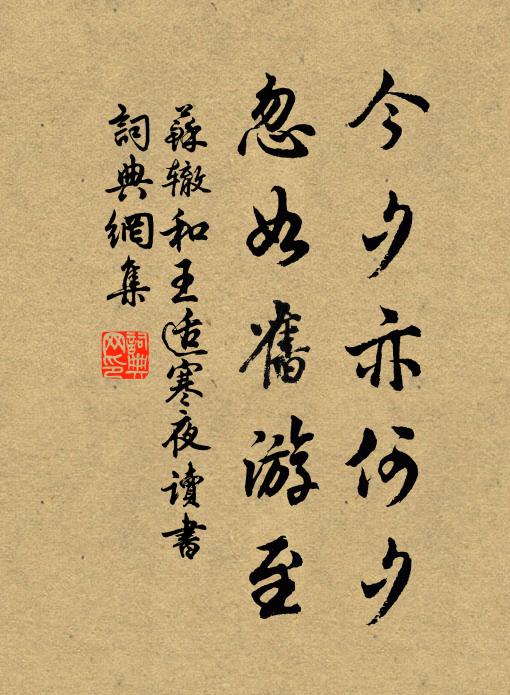 今夕亦何夕
忽如舊游至
蘇辙和王适寒夜讀書
詞典網集
詞典网印